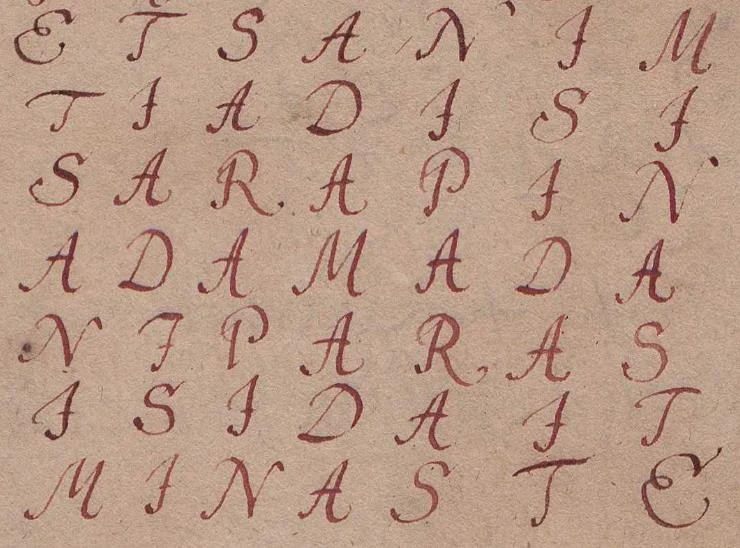 E T S A N I M
T I A D I S I
S A R A P I N
A D A M A D A
N I P A R A S
I S I D A I T
M I N A S T E